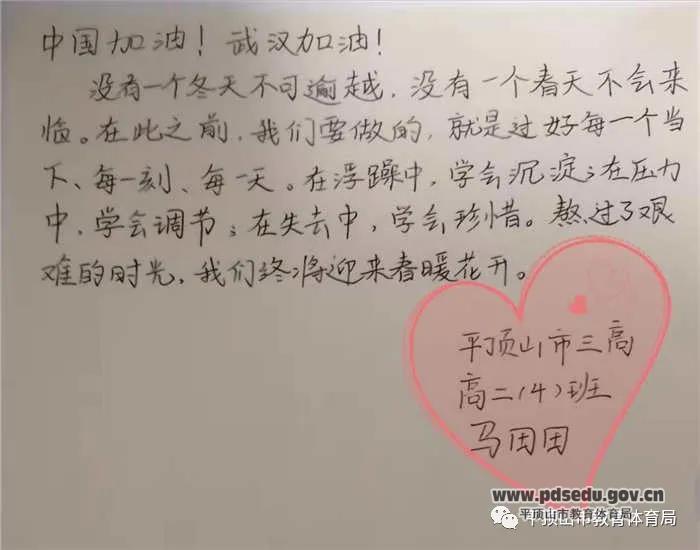 中国加油！武汉加油！
没有一个冬天不可逾越，没有一个春天不会来
临。在此之前，我们要做的，就是过好每一个当
下、每一刻、每一天。在浮躁中，学会沉淀；在压力
中，学会调节；在失去中，学会珍惜。熬过了艰
难的时光，我们终将迎来春暖花开。
平顶山市三高
高二（4）班
马田田
www.pdsedu.gov.cn
平顶山市教育体育局
平顶山市教育体育局